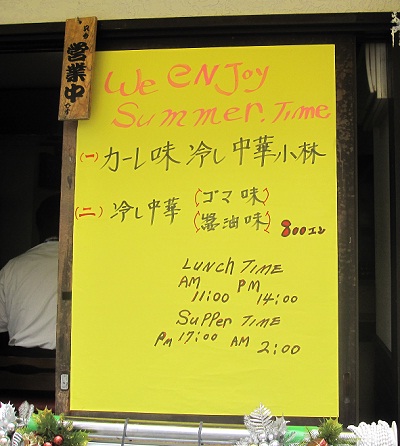 営業中
We enjoy
Summer. Time
(一) カーレ味 冷し中華小林
(二) 冷し中華 (ゴマ味)
(醤油味) 800エン
Lunch Time
AM PM
11:00 14:00
Supper Time
PM 17:00 AM 2:00